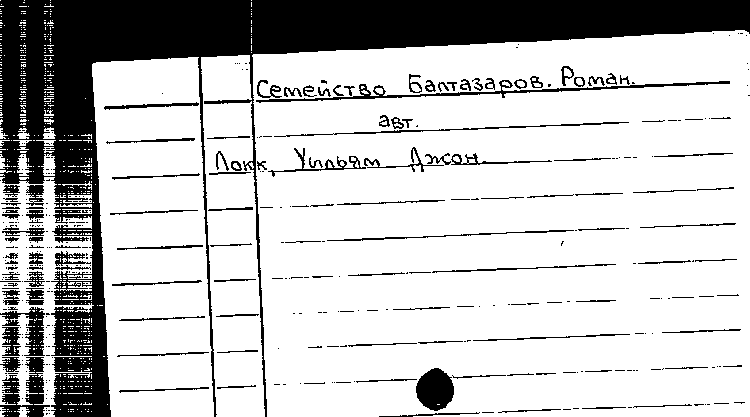 Семейство Балтазаров. Роман.
авт.
Локк, Уильям Джон.